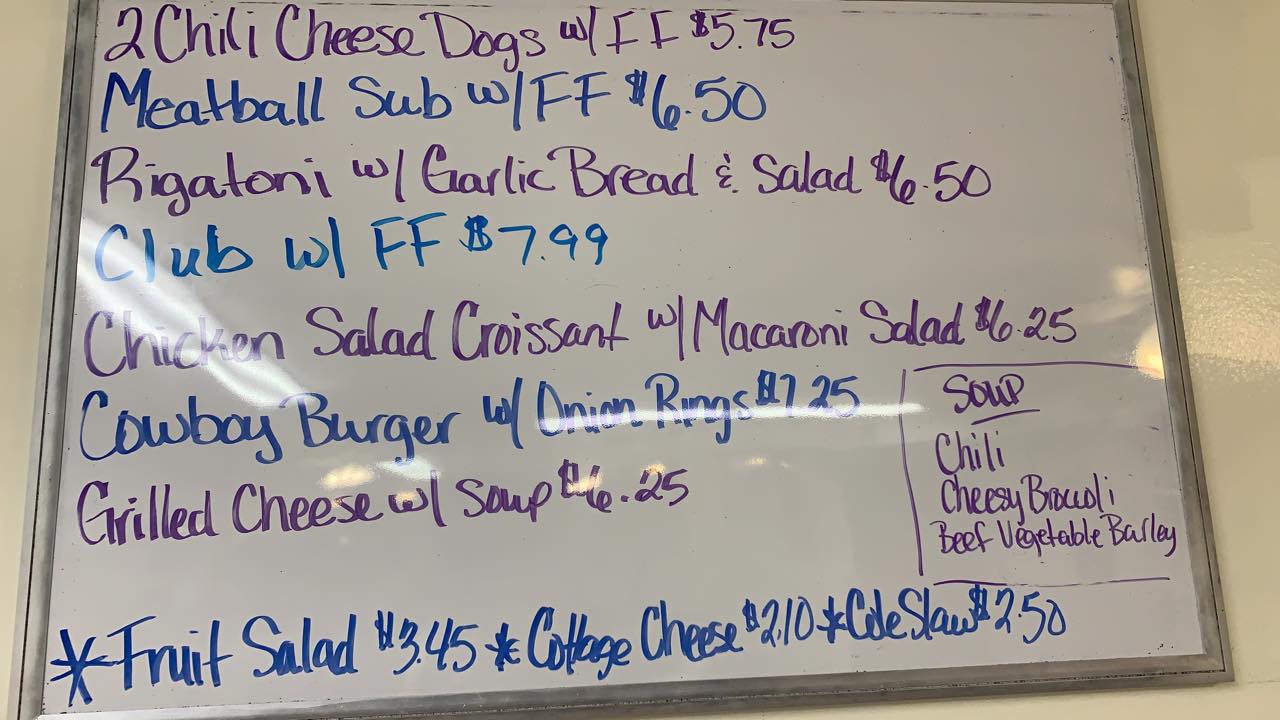 2 Chili Cheese Dogs w/ FF $5.75
Meatball Sub w/ FF $6.50
Rigatoni w/ Garlic Bread & Salad $6.50
Club w/ FF $7.99
Chicken Salad Croissant w/ Macaroni Salad $6.25
Cowboy Burger w/ Onion Rings $7.25
Grilled Cheese w/ Soup $6.25
Soup
Chili
Cheesy Broccoli
Beef Vegetable Barley
*Fruit Salad $3.45 * Cottage Cheese $2.10 *Cole Slaw $2.50